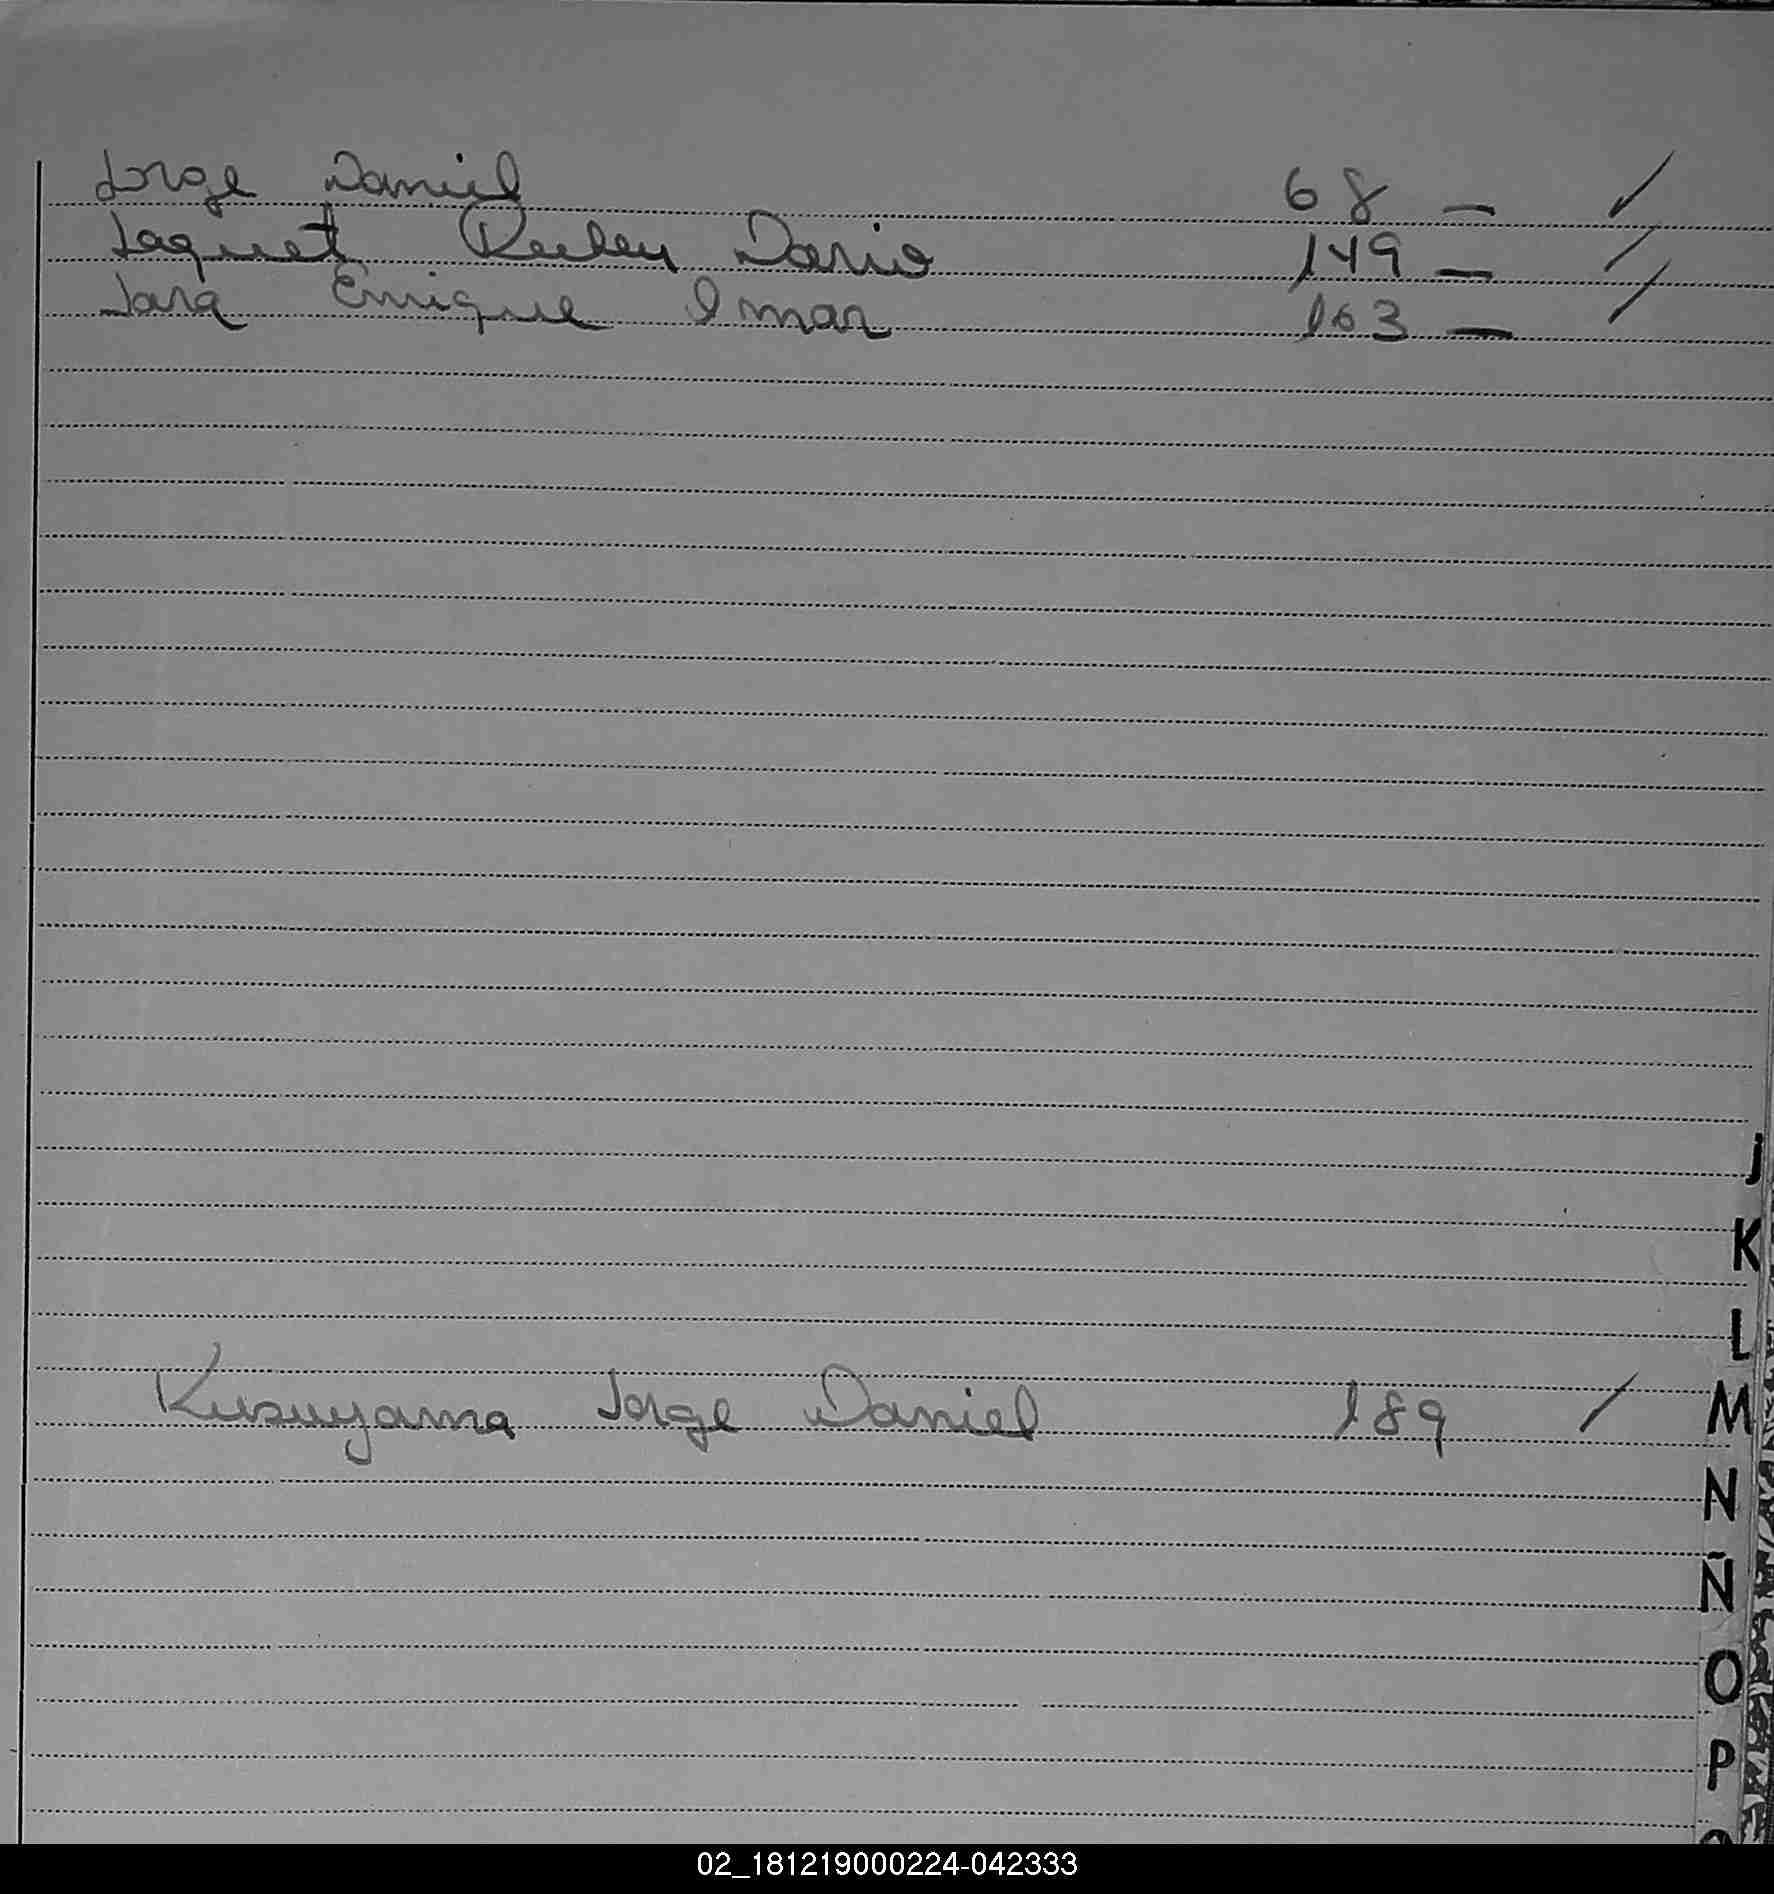 Jorge Daniel 68 — ✓
Jaquet Ruben Dario 149 — /
Jara Enrique Omar 163 — /
J
K
L
Kusuyama Jorge Daniel 189 /
M
N
Ñ
O
P
02_181219000224-042333